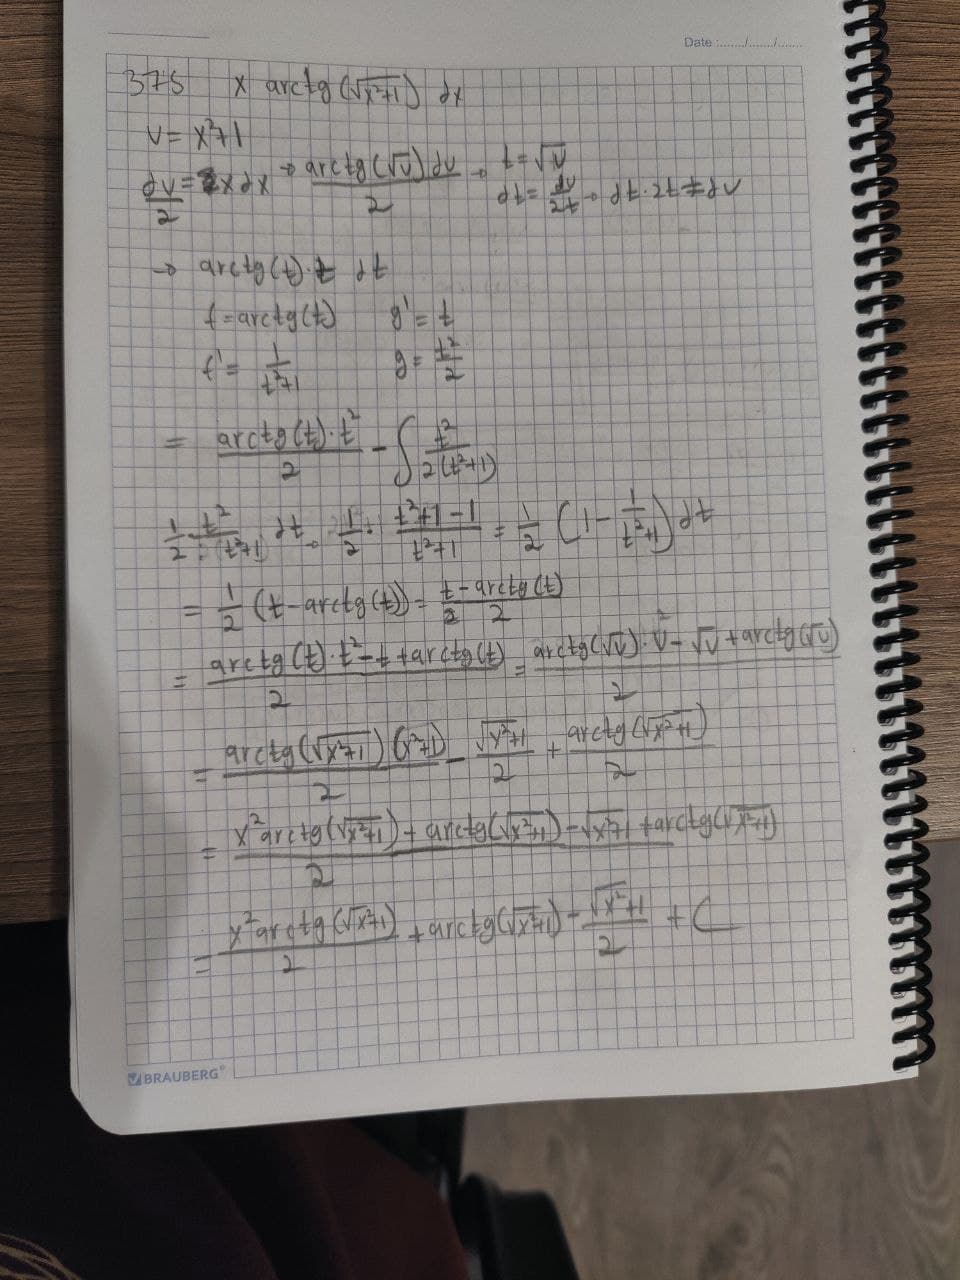 Date :......./......./.......
375 x arctg(√x²+1) dx
v = x²+1
dv/2 = x dx → arctg(√v) dv / 2 → t = √v
dt = dv/2t → dt·2t = dv
→ arctg(t)·t dt
f = arctg(t) g' = t
f' = 1/(t²+1) g = t²/2
= arctg(t)·t² / 2 - ∫ t² / 2(t²+1)
1/2 · t²/(t²+1) dt → 1/2 · (t²+1-1)/(t²+1) = 1/2 (1 - 1/(t²+1)) dt
= 1/2 (t - arctg(t)) = t/2 - arctg(t)/2
= (arctg(t)·t² - t + arctg(t)) / 2 = (arctg(√v)·v - √v + arctg(√v)) / 2
= arctg(√x²+1)(x²+1) / 2 - √x²+1 / 2 + arctg(√x²+1) / 2
= (x² arctg(√x²+1) + arctg(√x²+1) - √x²+1 + arctg(√x²+1)) / 2
= x² arctg(√x²+1) / 2 + arctg(√x²+1) - √x²+1 / 2 + C
BRAUBERG®